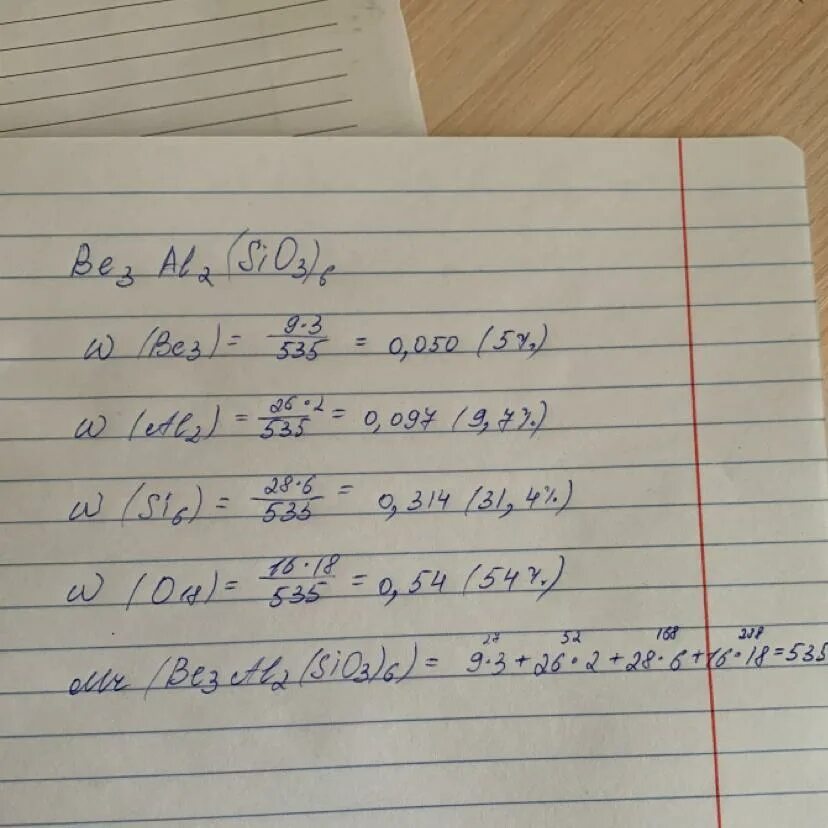 Be₃ Al₂ (SiO₃)₆
W (Be₃) = 9·3/535 = 0,050 (5%)
W (Al₂) = 26·2/535 = 0,097 (9,7%)
W (Si₆) = 28·6/535 = 0,314 (31,4%)
W (O₁₈) = 16·18/535 = 0,54 (54%)
27 52 168 288
Mr (Be₃Al₂(SiO₃)₆) = 9·3+26·2+28·6+16·18=535